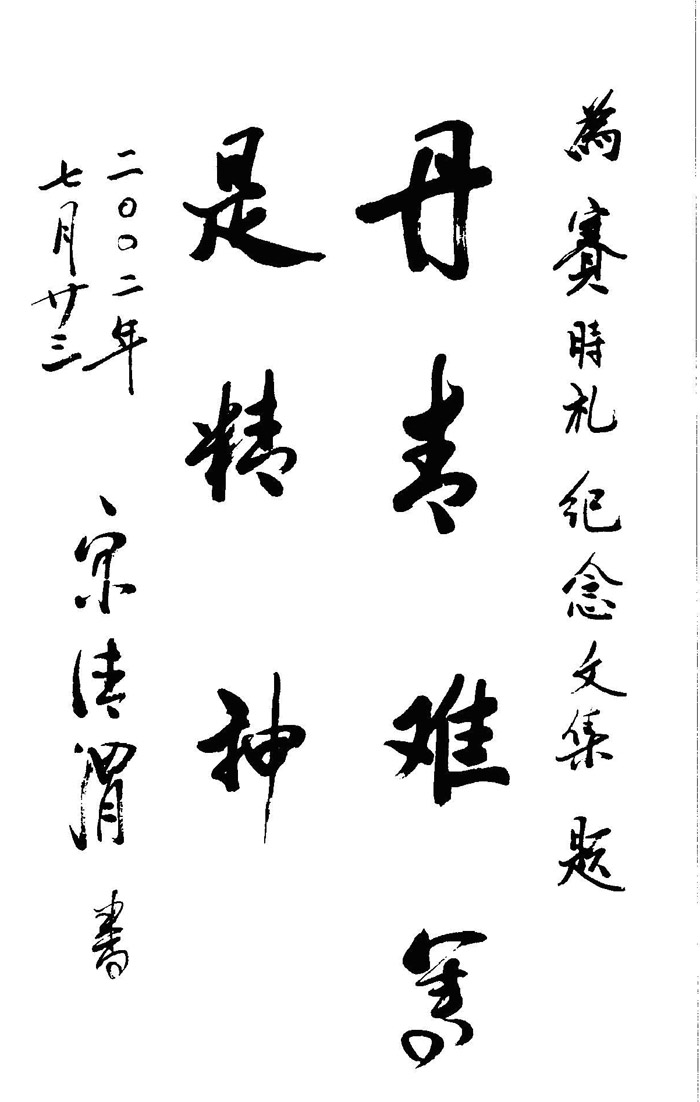 為賽時礼纪念文集题
丹青难写
是精神
二〇〇二年
七月廿三
宋清渭書